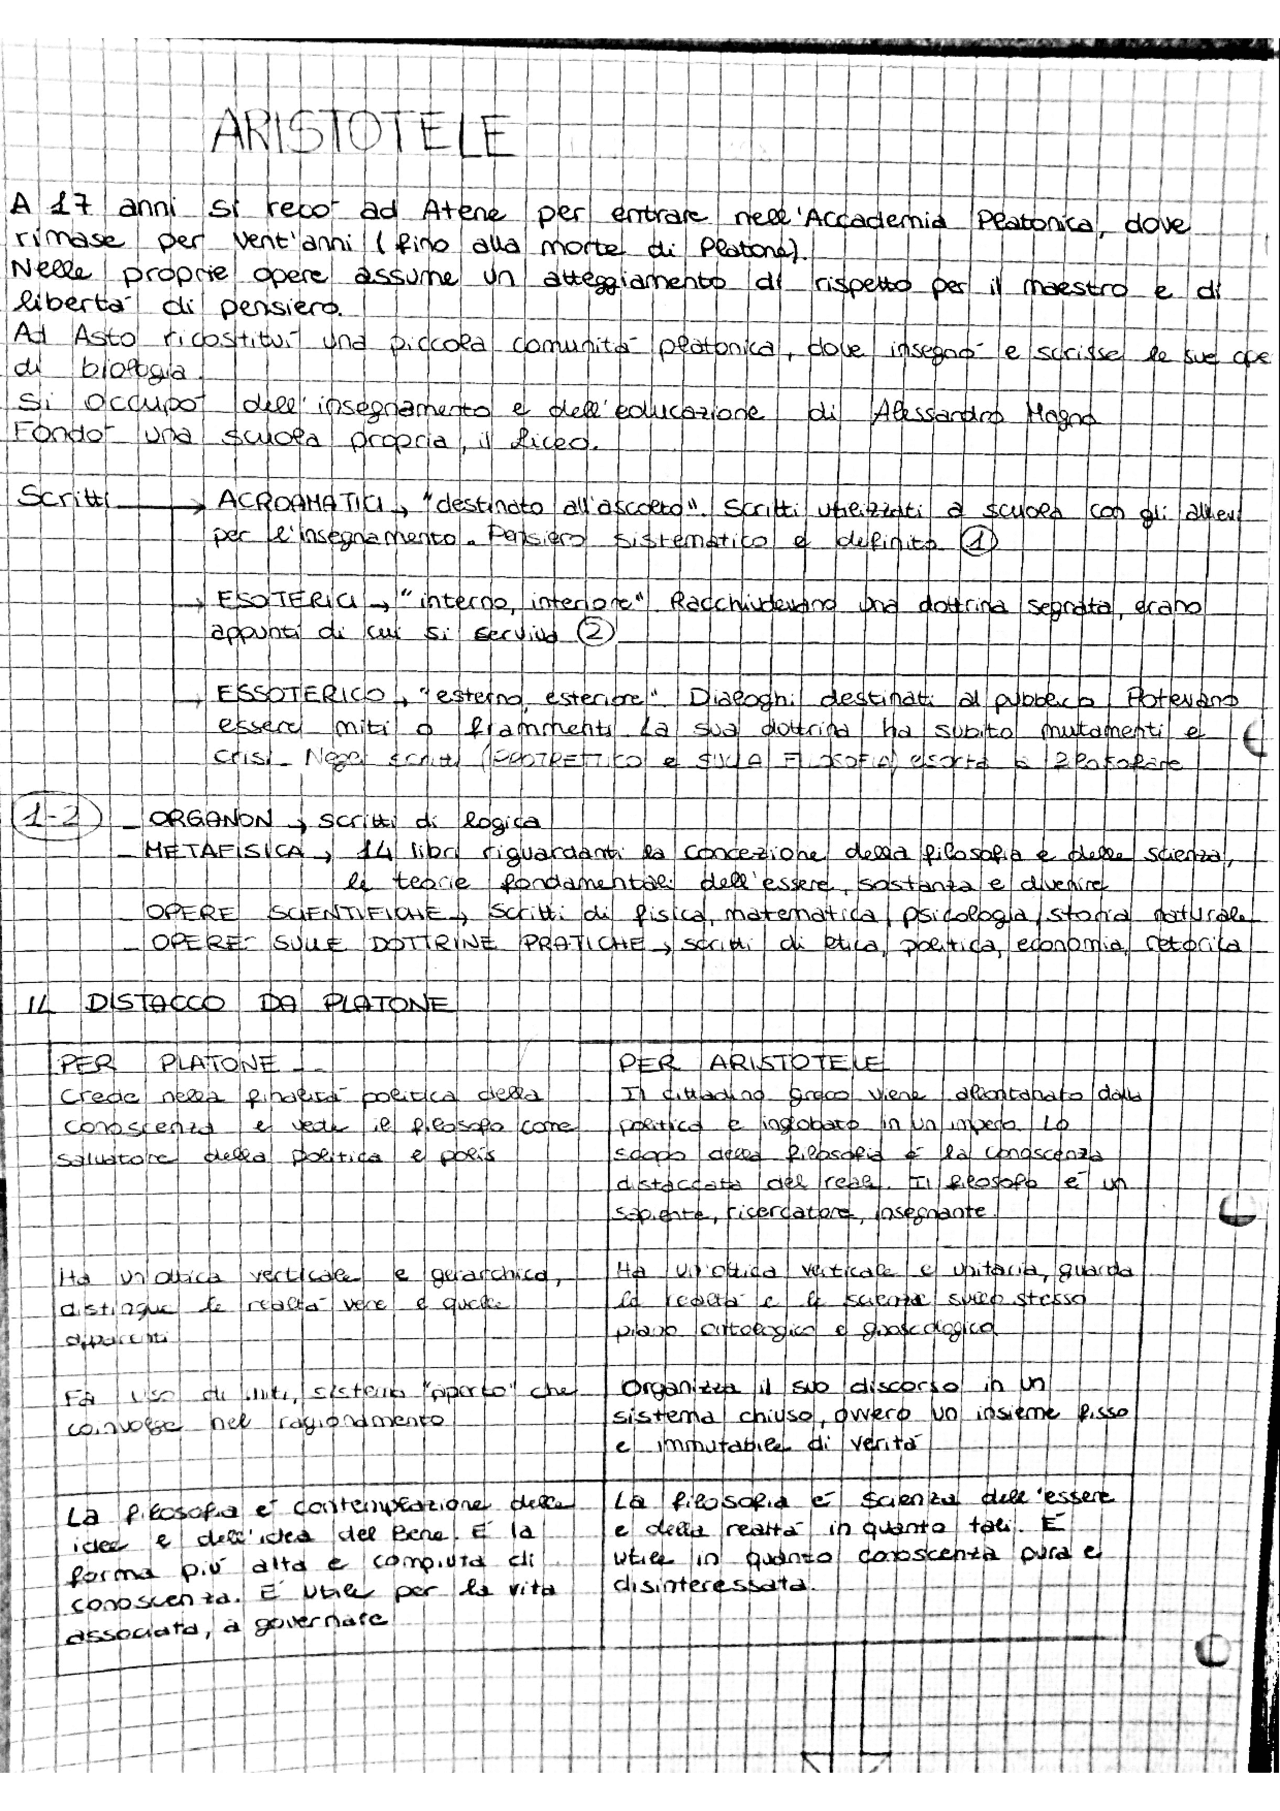 ARISTOTELE
A 17 anni si recò ad Atene per entrare nell'Accademia Platonica, dove
rimase per vent'anni (fino alla morte di Platone).
Nelle proprie opere assume un atteggiamento di rispetto per il maestro e di
libertà di pensiero.
Ad Asto ricostituì una piccola comunità platonica, dove insegnò e scrisse le sue ope
di biologia.
Si occupò dell'insegnamento e dell'educazione di Alessandro Magno
Fondò una scuola propria, il Liceo.
Scritti → ACROAMATICI → "destinato all'ascolto". Scritti utilizzati a scuola con gli allievi
per l'insegnamento. Pensiero sistematico e definito ①
→ ESOTERICI → "interno, interiore" Racchiudevano una dottrina segrata, erano
appunti di cui si serviva ②
→ ESSOTERICO → "esterno, esteriore" Dialoghi destinati al pubblico Potevano
essere miti o frammenti La sua dottrina ha subito mutamenti e
crisi. Negli scritti (PROTRETTICO e SULLA FILOSOFIA) esorta a filosofare
1-2 - ORGANON → scritti di logica
- METAFISICA → 14 libri riguardanti la concezione della filosofia e delle scienza,
le teorie fondamentali dell'essere, sostanza e divenire
- OPERE SCIENTIFICHE → scritti di fisica, matematica, psicologia, storia naturale
- OPERE SULLE DOTTRINE PRATICHE → scritti di etica, politica, economia, retorica
IL DISTACCO DA PLATONE
PER PLATONE
Crede nella finalità politica della
conoscenza e vede il filosofo come
salvatore della politica e polis
PER ARISTOTELE
Il cittadino greco viene allontanato dalla
politica e inglobato in un impero. Lo
scopo della filosofia è la conoscenza
distaccata del reale. Il filosofo è un
sapiente, ricercatore, insegnante.
Ha un'ottica verticale e gerarchica,
distingue le realtà vere e quelle
apparenti
Ha un'ottica verticale e unitaria, guarda
la realtà e le scienze sullo stesso
piano ontologico e gnoseologico
Fa uso di miti, sistema "aperto" che
coinvolge nel ragionamento
Organizza il suo discorso in un
sistema chiuso, ovvero un insieme fisso
e immutabile di verità
La filosofia è contemplazione delle
idee e dell'idea del Bene. È la
forma più alta e compiuta di
conoscenza. È utile per la vita
associata, a governare
La filosofia è scienza dell'essere
e della realtà in quanto tali. È
utile in quanto conoscenza pura e
disinteressata.